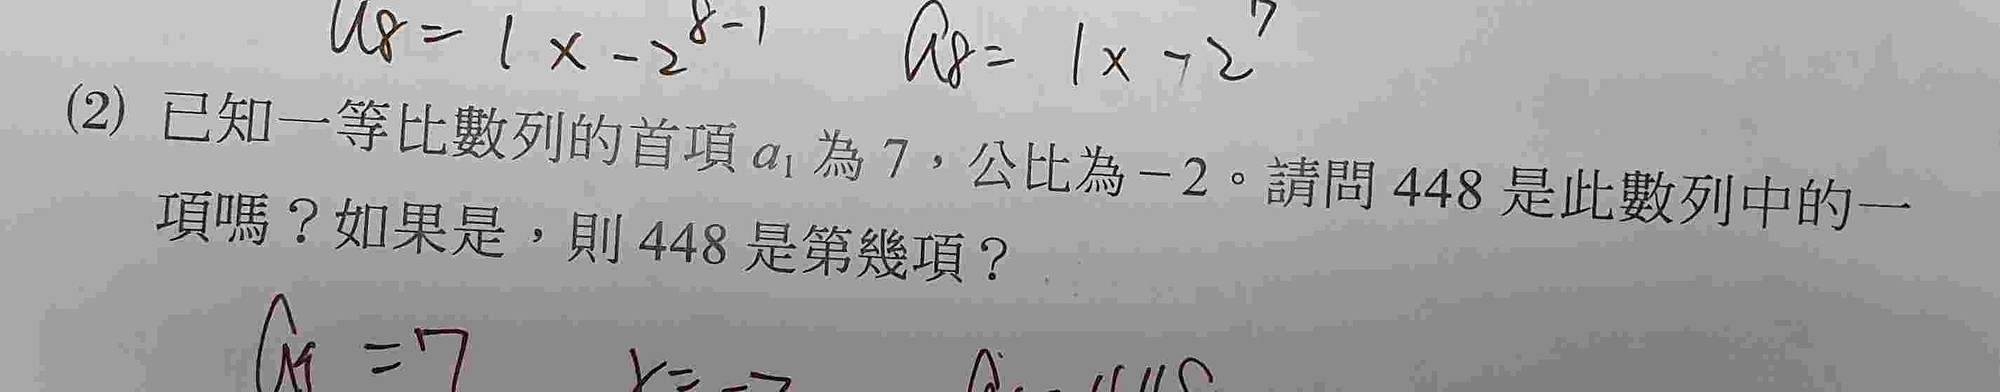 a₈ = 1 x -2⁸⁻¹ a₈ = 1 x -2⁷
(2) 已知一等比數列的首項 a₁ 為 7，公比為 −2。請問 448 是此數列中的一
項嗎？如果是，則 448 是第幾項？
= 7 r = -2